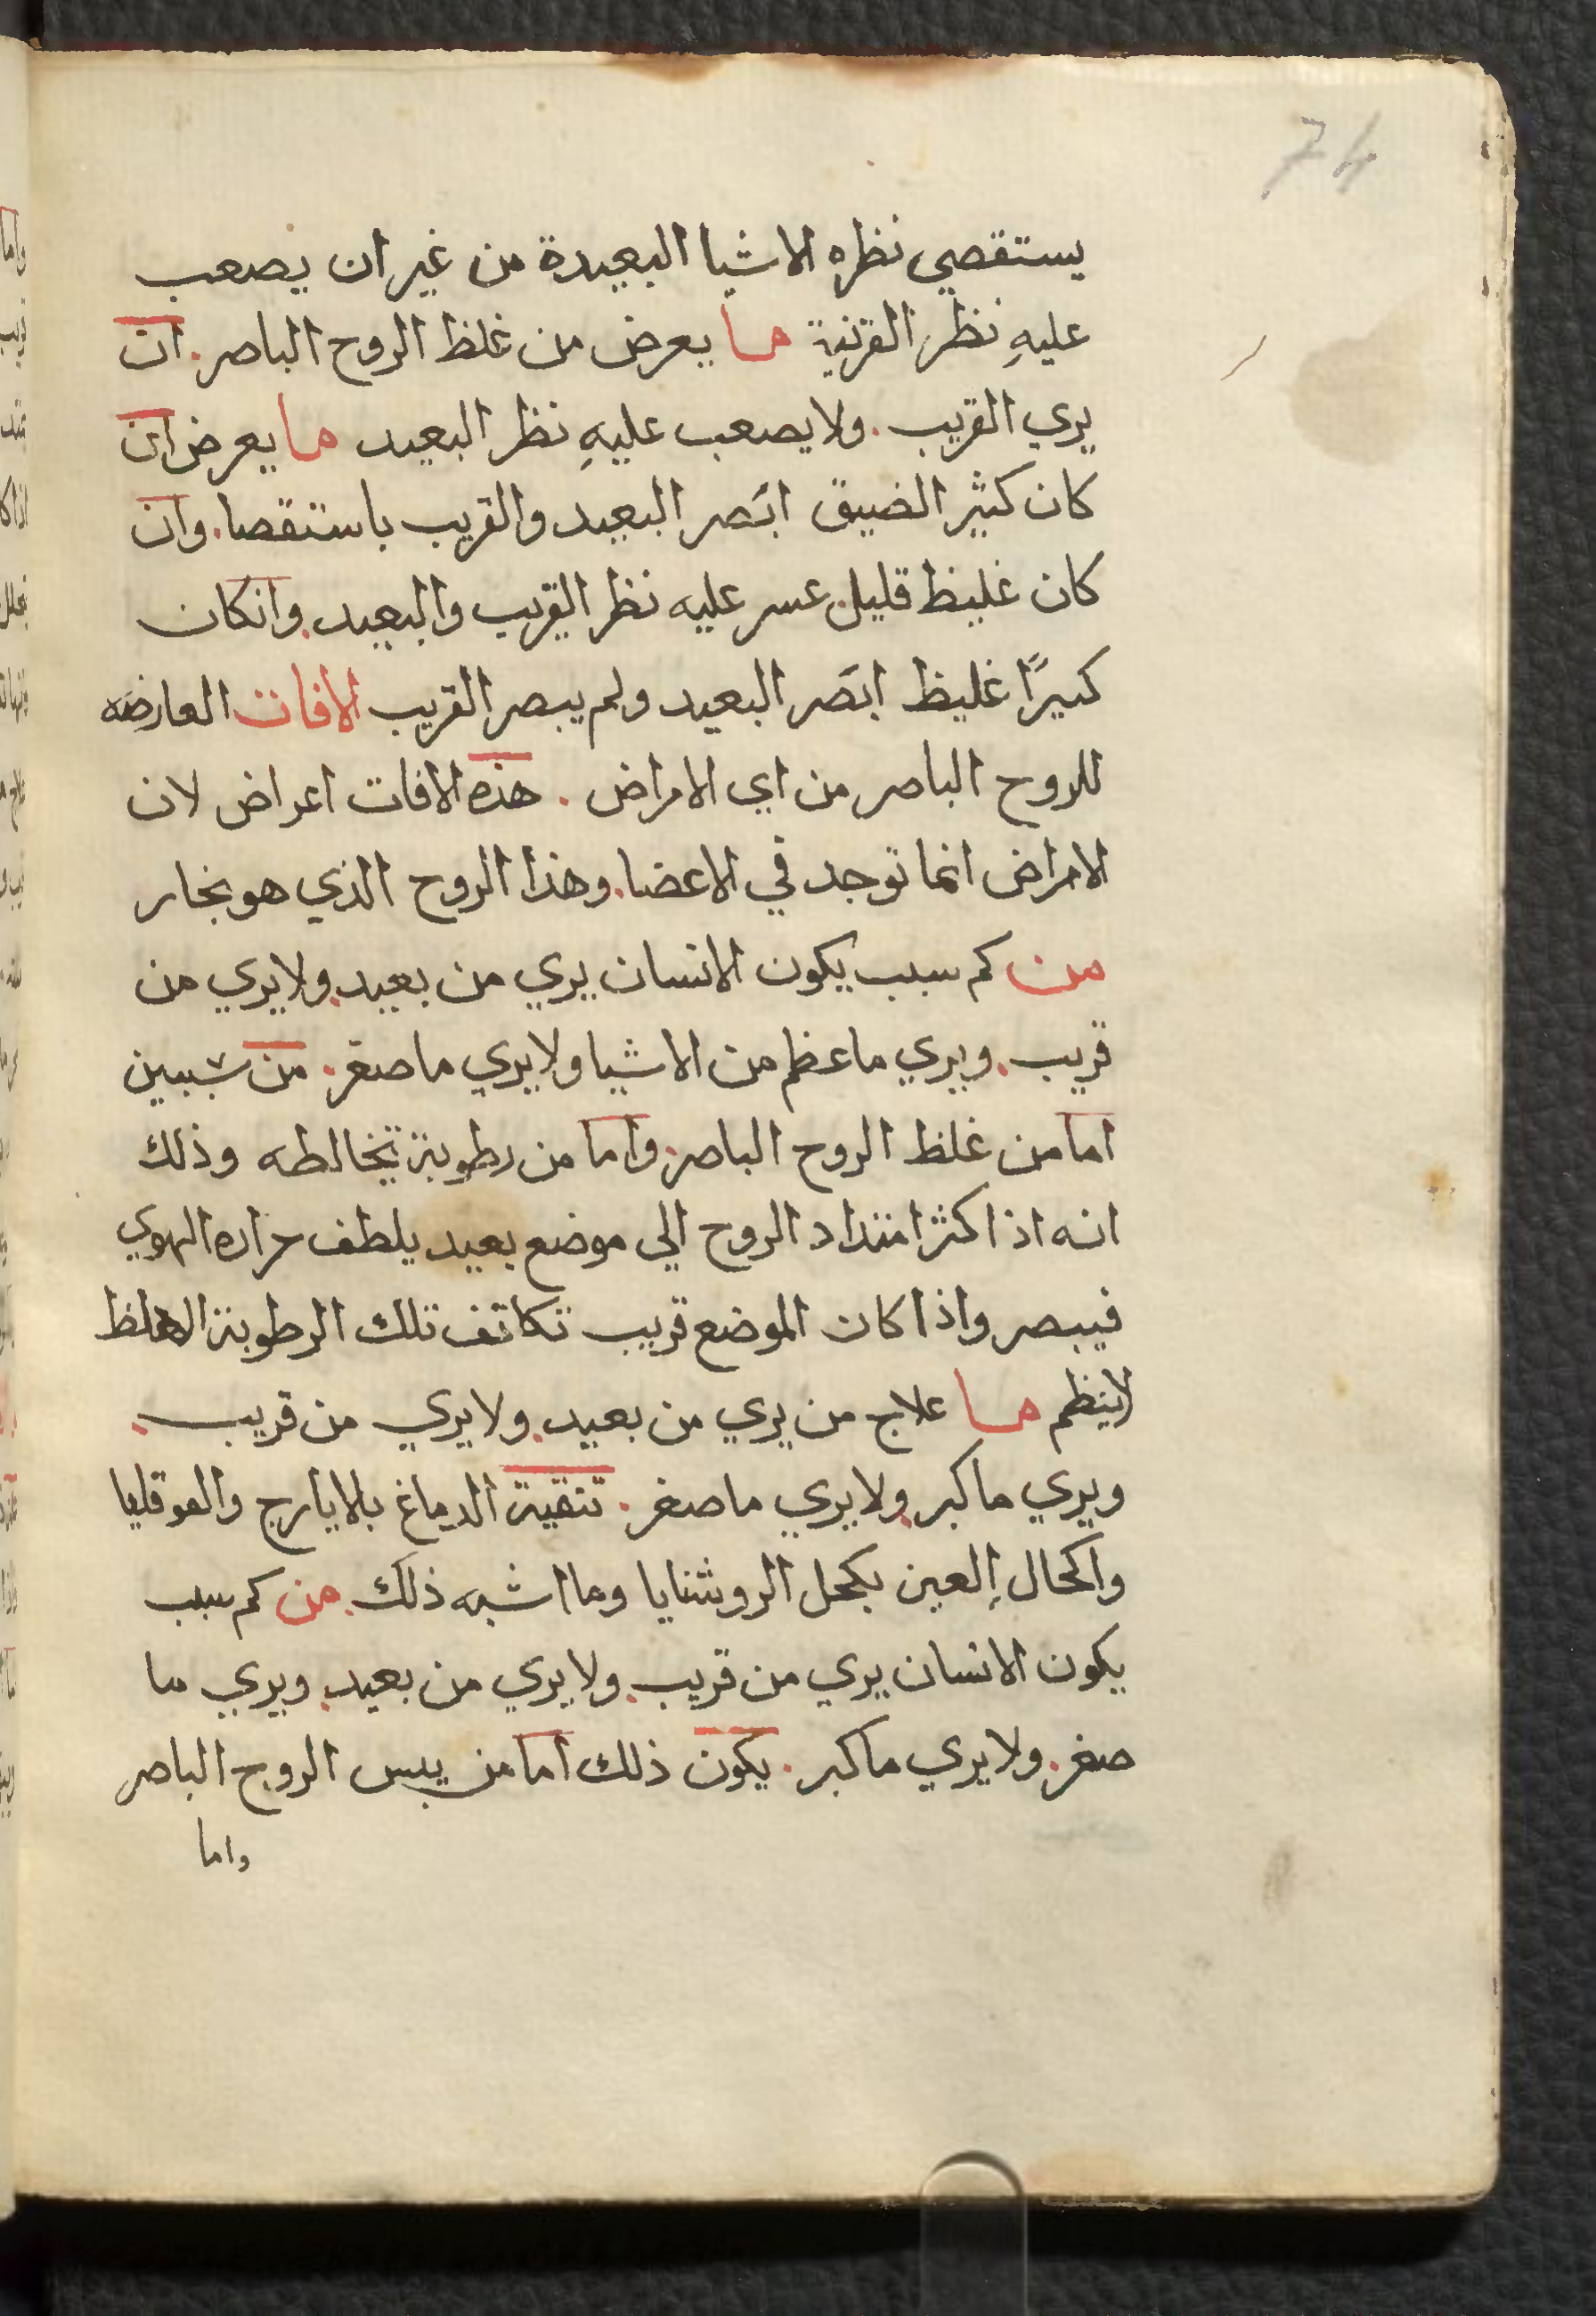 74
يستقصي نظره الاشيا البعيدة من غير ان يصعب
عليهِ نظر القرنية ما يعرض من غلظ الروح الباصر. ان
يري القريب. ولا يصعب عليهِ نظر البعيد ما يعرض ان
كان كثير الضيق ابَصر البعيد والقريب باستقصا. وان
كان غليظ قليل. عسر عليه نظر القريب والبعيد. وانكان
كبيرًا غليظ ابَصر البعيد ولم يبصر القريب الافات العارضه
للروح الباصر من اي الامراض. هذه الافات اعراض لان
الامراض انما توجد في الاعضا. وهذا الروح الذي هو بخار
من كم سبب يكون الانسان يري من بعيد. ولا يري من
قريب. ويري ما عظم من الاشيا ولا يري ما صغر. من سببين
اما من غلظ الروح الباصر. واما من رطوبة تخالطه وذلك
انه اذا كثر امتداد الروح الي موضع بعيد يلطف حراره الهوي
فيبصر واذا كان الموضع قريب تكاتف تلك الرطوبة
ما علاج من يري من بعيد. ولا يري من قريب.
ويري ما كبر. ولا يري ما صغر. تنقية الدماغ بالايارج والقوقايا
واكحال العين بكحل الروشنايا وما اشبه ذلك. من كم سبب
يكون الانسان يري من قريب. ولا يري من بعيد. ويري ما
صغر. ولا يري ما كبر. يكون ذلك اما من يبس الروح الباصر
واما